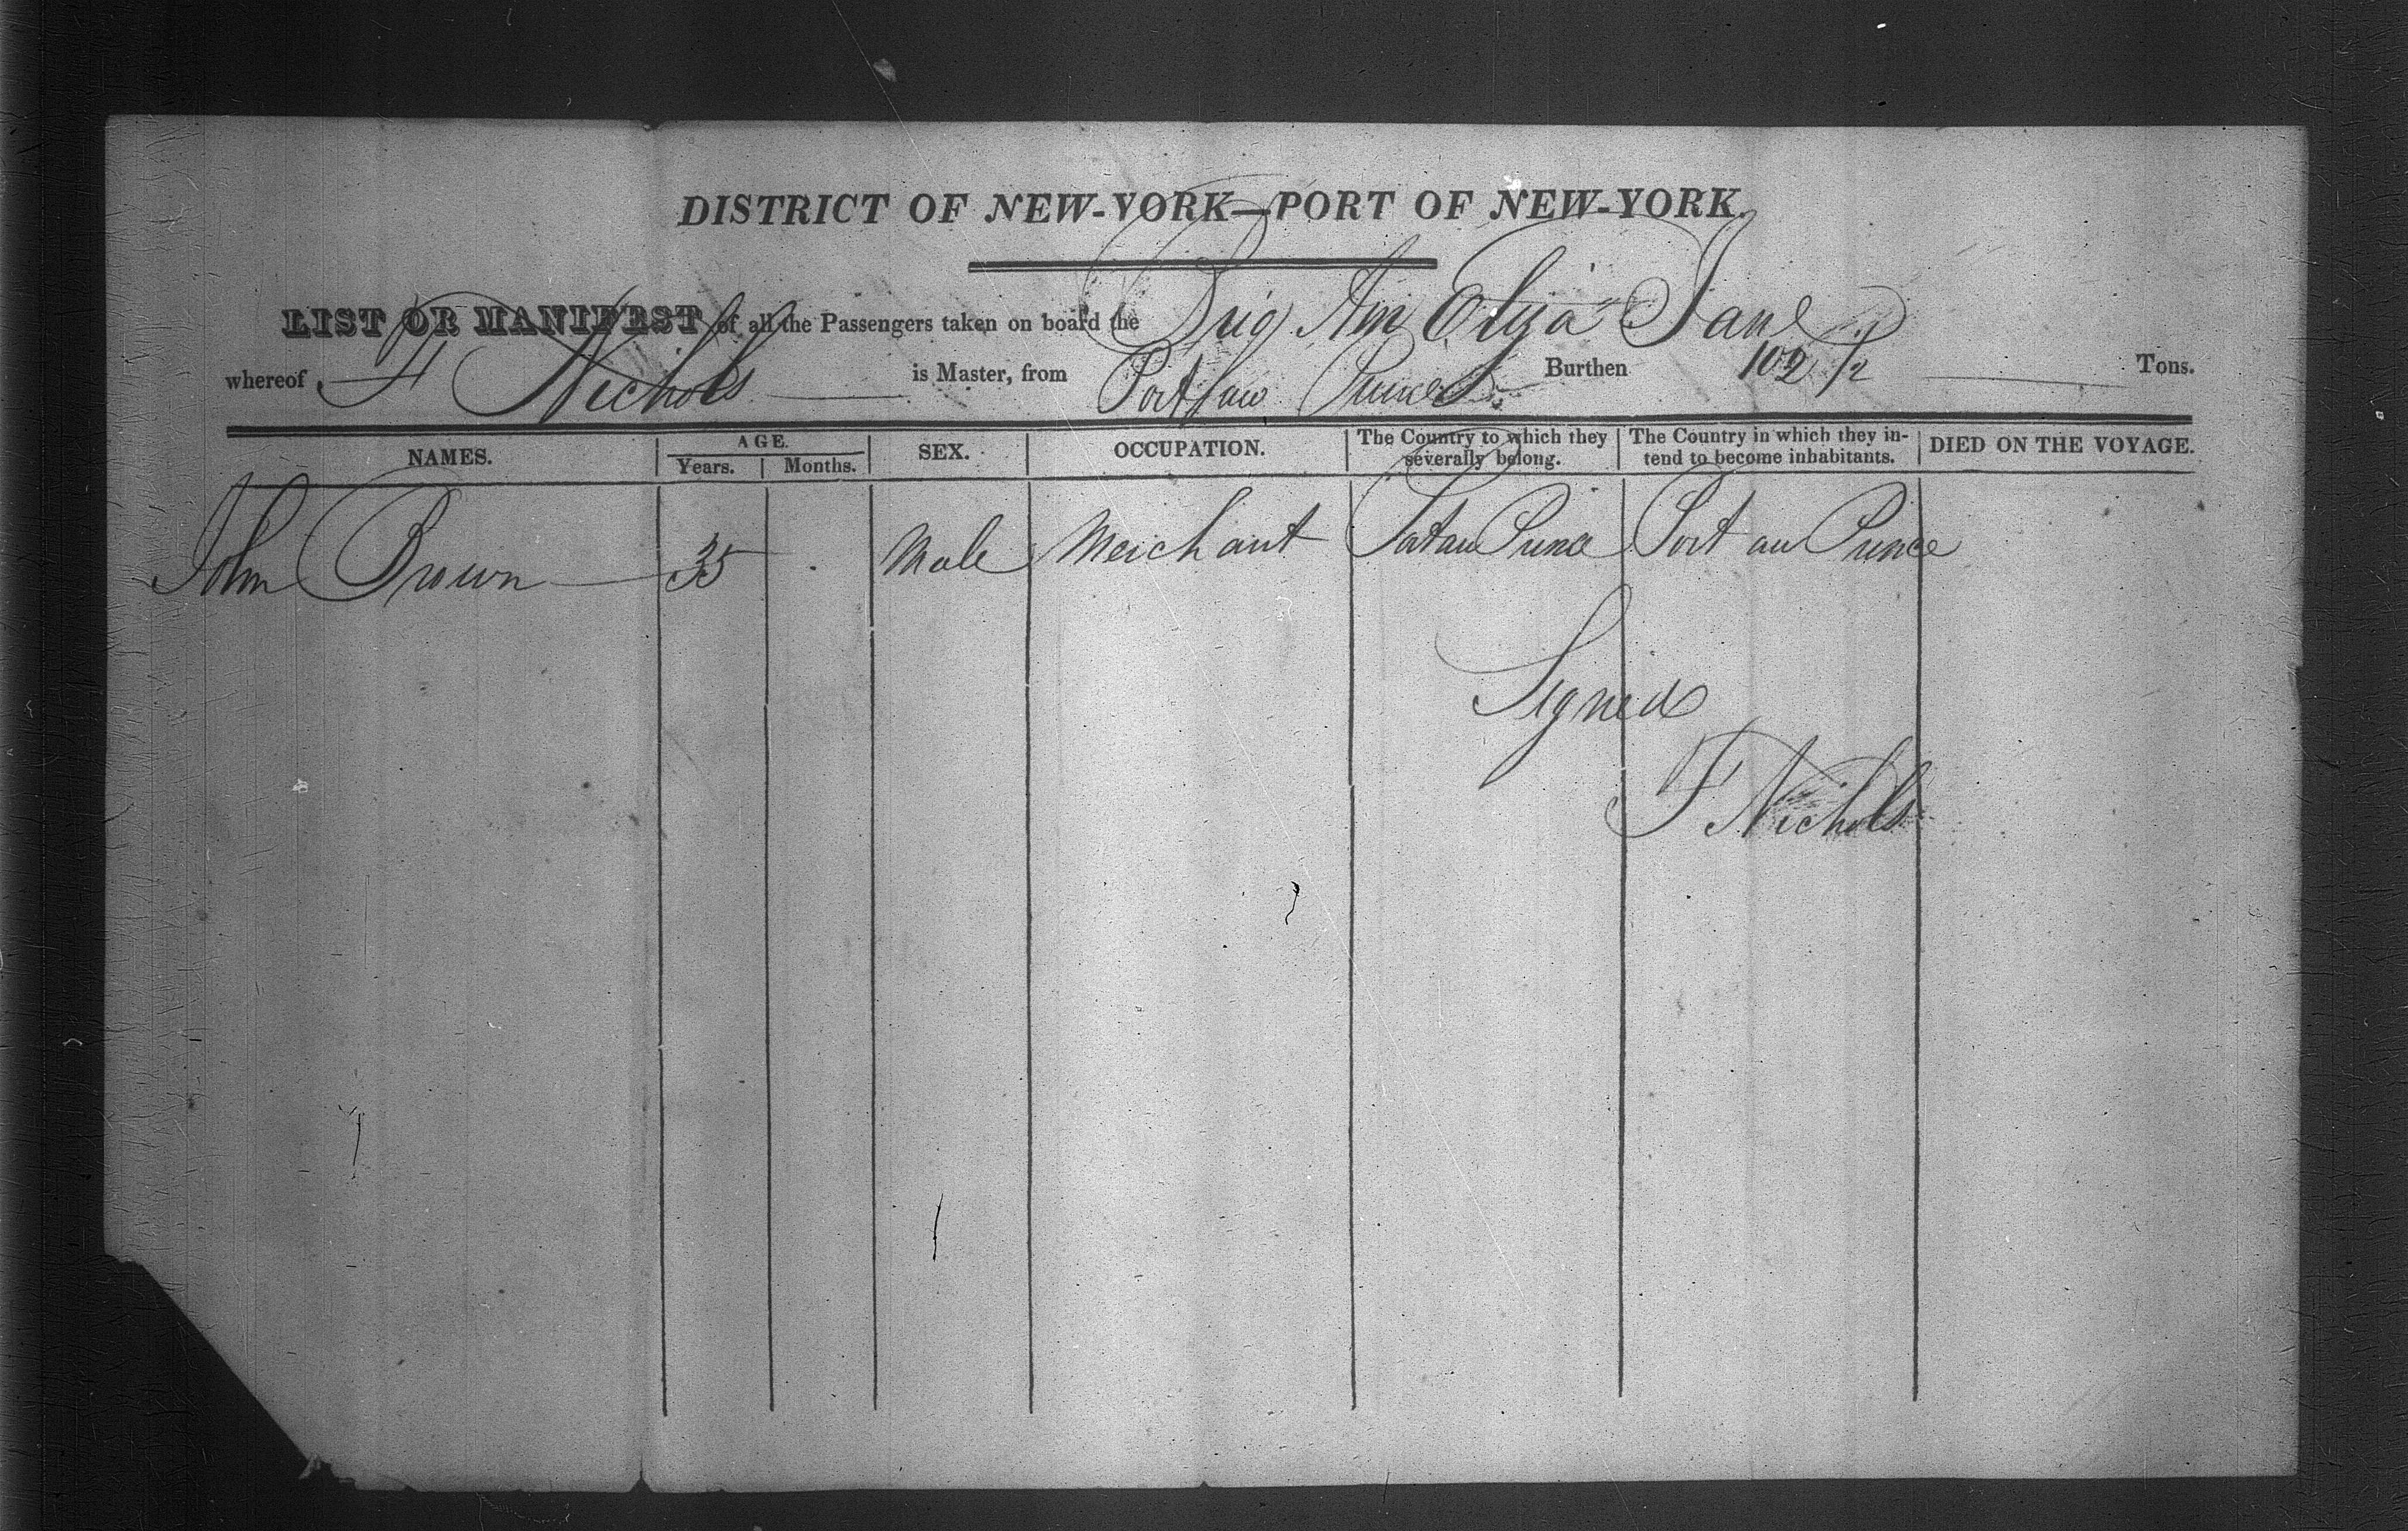 DISTRICT OF NEW-YORK—PORT OF NEW-YORK.
LIST OR MANIFEST of all the Passengers taken on board the Brig Ann Eliza Jane
whereof F Nichols is Master, from Port au Prince Burthen 102 1/2 Tons.
NAMES. AGE. Years. Months. SEX. OCCUPATION. The Country to which they severally belong. The Country in which they intend to become inhabitants. DIED ON THE VOYAGE.
John Brown 35 Male Merchant Port au Prince Port au Prince
Signed
F Nichols